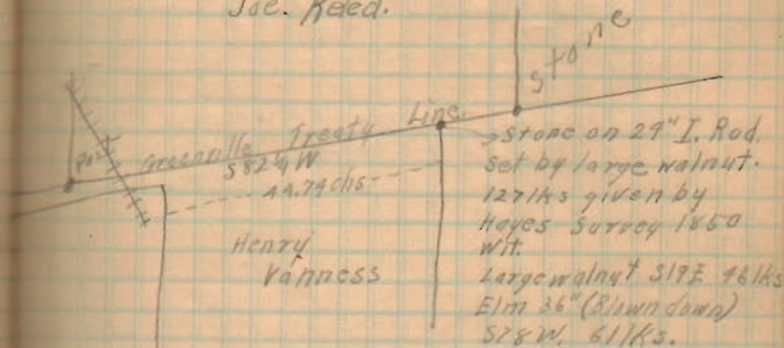 Joe. Reed.
Stone
Greenville Treaty Line.
S 82¼ W
44.74 chs
Post
Henry
Vanness
Stone on 29" I. Rod.
set by large walnut.
127 lks given by
Hayes Survey 1850
Wit.
Large walnut S19E 46 lks
Elm 36" (Blown down)
S78W. 61 lks.